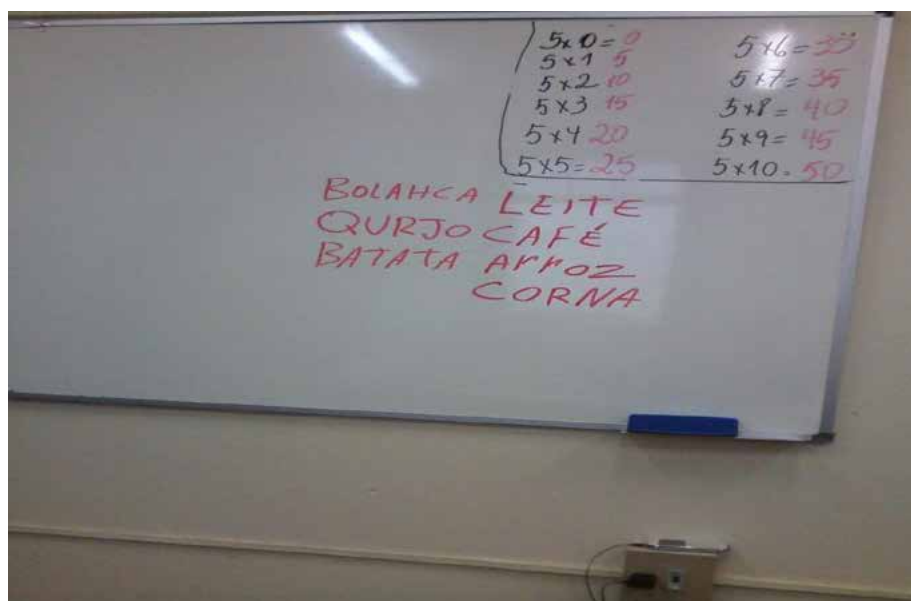 5x0=0
5x1 5
5x2 10
5x3 15
5x4 20
5x5=25
5x6=30
5x7=35
5x8=40
5x9=45
5x10=50
BOLAHCA LEITE
QURJO CAFÉ
BATATA ArroZ
CORNA